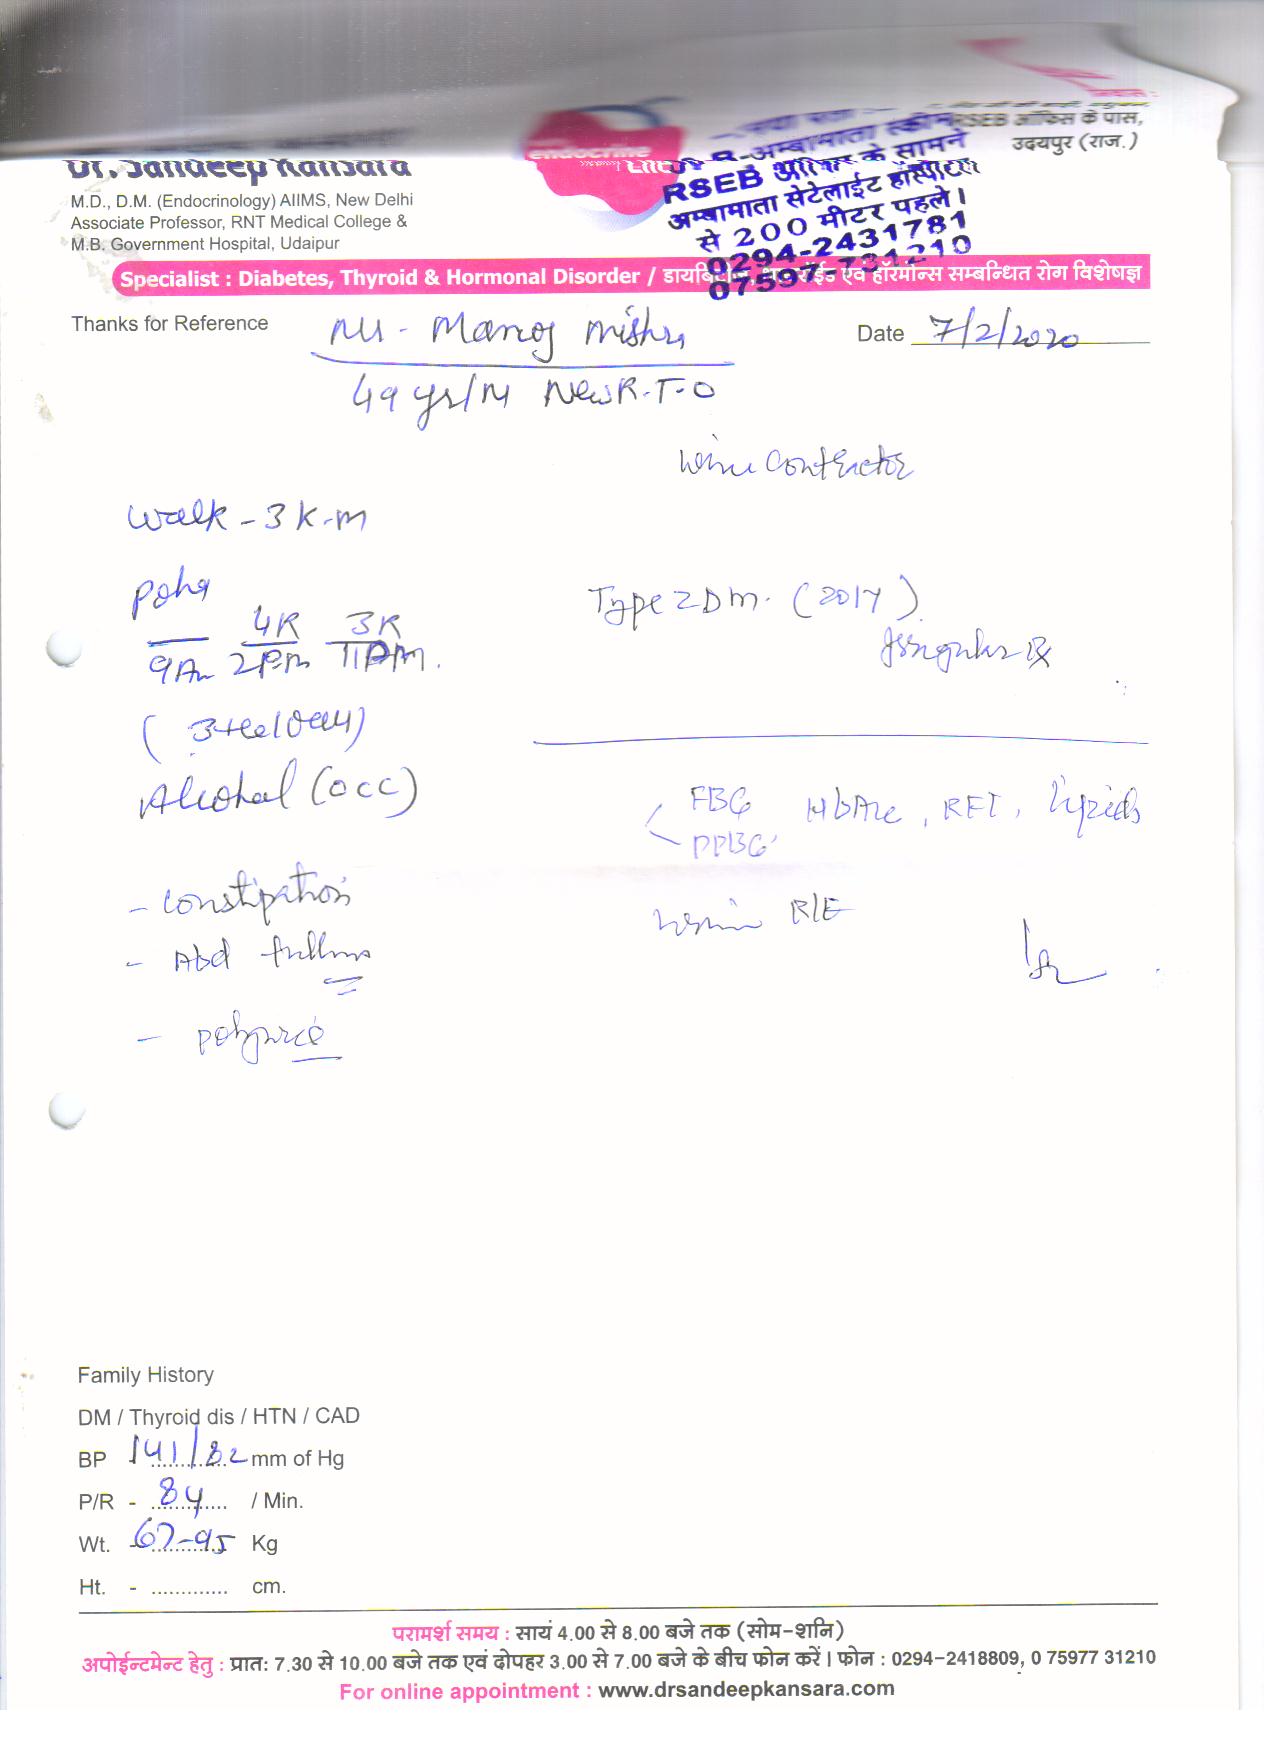 RSEB ऑफिस के पास,
उदयपुर (राज.)
Dr. Sandeep Kansara
M.D., D.M. (Endocrinology) AIIMS, New Delhi
Associate Professor, RNT Medical College &
M.B. Government Hospital, Udaipur
endocrine
अम्बामाता स्कीम
RSEB ऑफिस के सामने
अम्बामाता सेटेलाईट हॉस्पीटल
से 200 मीटर पहले।
0294-2431781
07597-731210
Specialist : Diabetes, Thyroid & Hormonal Disorder / डायबिटीज, थायरॉईड एवं हॉरमोन्स सम्बन्धित रोग विशेषज्ञ
Thanks for Reference
Manoj Mishra
Date 7/2/2020
49 yrs/M New R.T-O
Wine Contractor
Walk - 3 K.m
Poha
4R 3R
9Am 2Pm 11Pm.
Type 2 Dm. (2017)
Irregular Rx
Alcohol (occ)
FBG HbA1c, RFT, lipids
PPBG
- Constipation
Urine R/E
- Abd fullness
- polyuria
Family History
DM / Thyroid dis / HTN / CAD
BP - 141/82 mm of Hg
P/R - 84 / Min.
Wt. - 67-95 Kg
Ht. - ............. cm.
परामर्श समय : सायं 4.00 से 8.00 बजे तक (सोम-शनि)
अपोईन्टमेन्ट हेतु : प्रात: 7.30 से 10.00 बजे तक एवं दोपहर 3.00 से 7.00 बजे के बीच फोन करें। फोन : 0294-2418809, 0 75977 31210
For online appointment : www.drsandeepkansara.com